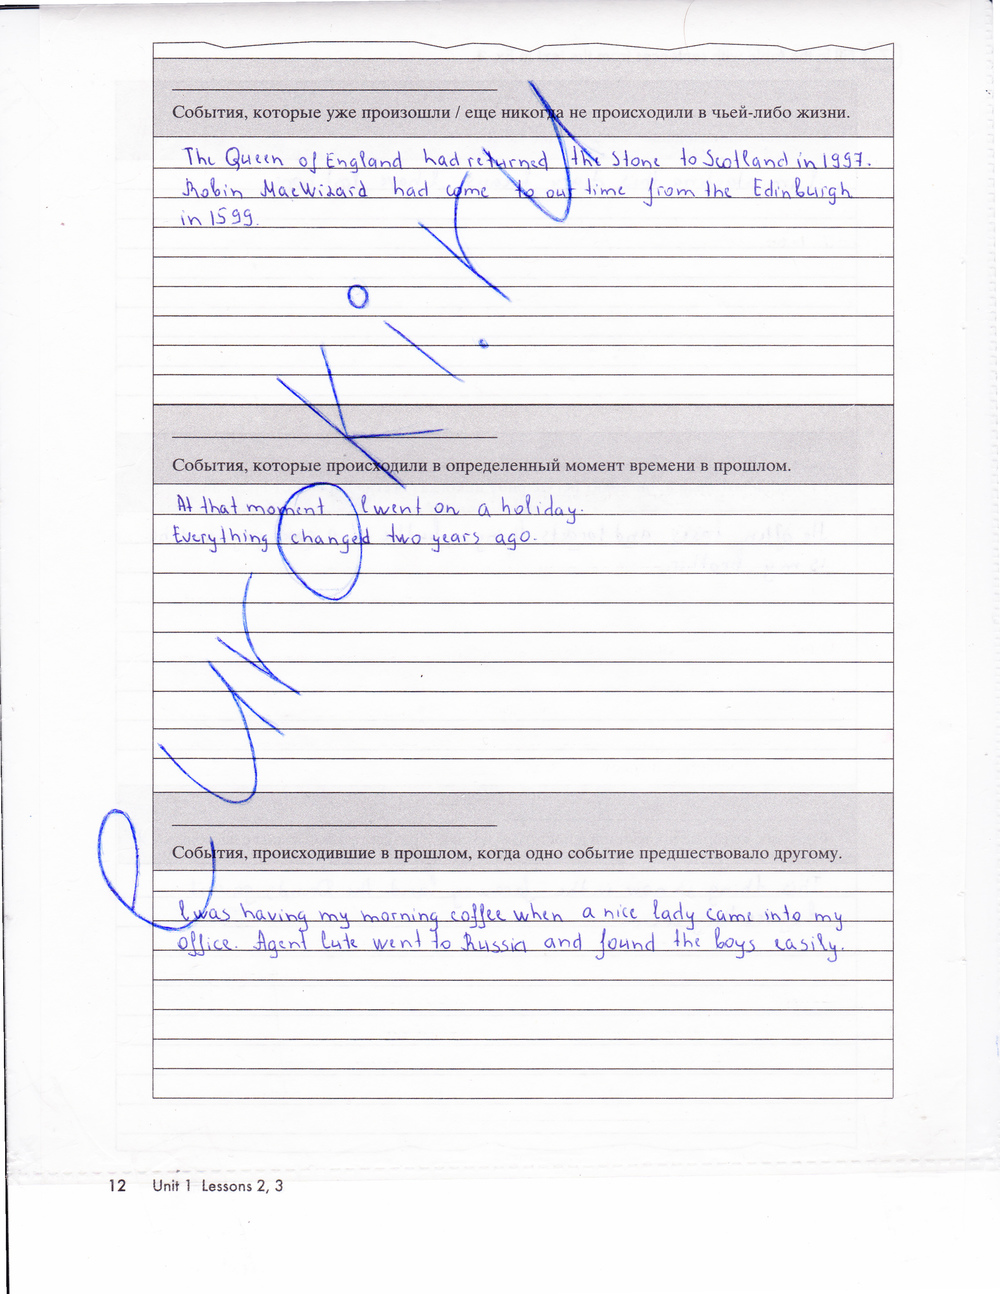 События, которые уже произошли / еще никогда не происходили в чьей-либо жизни.
The Queen of England had returned the Stone to Scotland in 1997.
Robin MacWizard had come to our time from the Edinburgh
in 1599.
События, которые происходили в определенный момент времени в прошлом.
At that moment I went on a holiday.
Everything changed two years ago.
События, происходившие в прошлом, когда одно событие предшествовало другому.
I was having my morning coffee when a nice lady came into my
office. Agent Lute went to Russia and found the boys easily.
euroki.ru
12 Unit 1 Lessons 2, 3